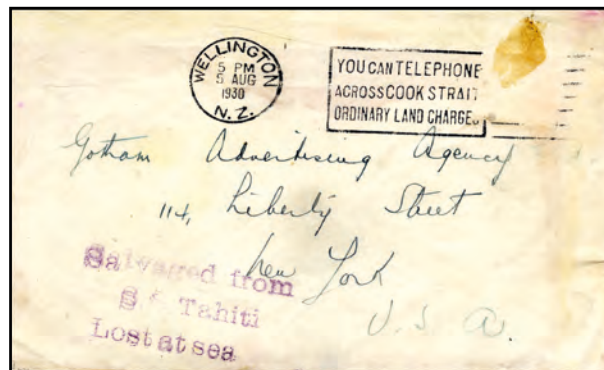 WELLINGTON
5 PM
5 AUG
1930
N.Z.
YOU CAN TELEPHONE
ACROSS COOK STRAIT
ORDINARY LAND CHARGES
Gotham Advertising Agency
114, Liberty Street
New York
U.S.A.
Salvaged from
S.S. Tahiti
Lost at sea